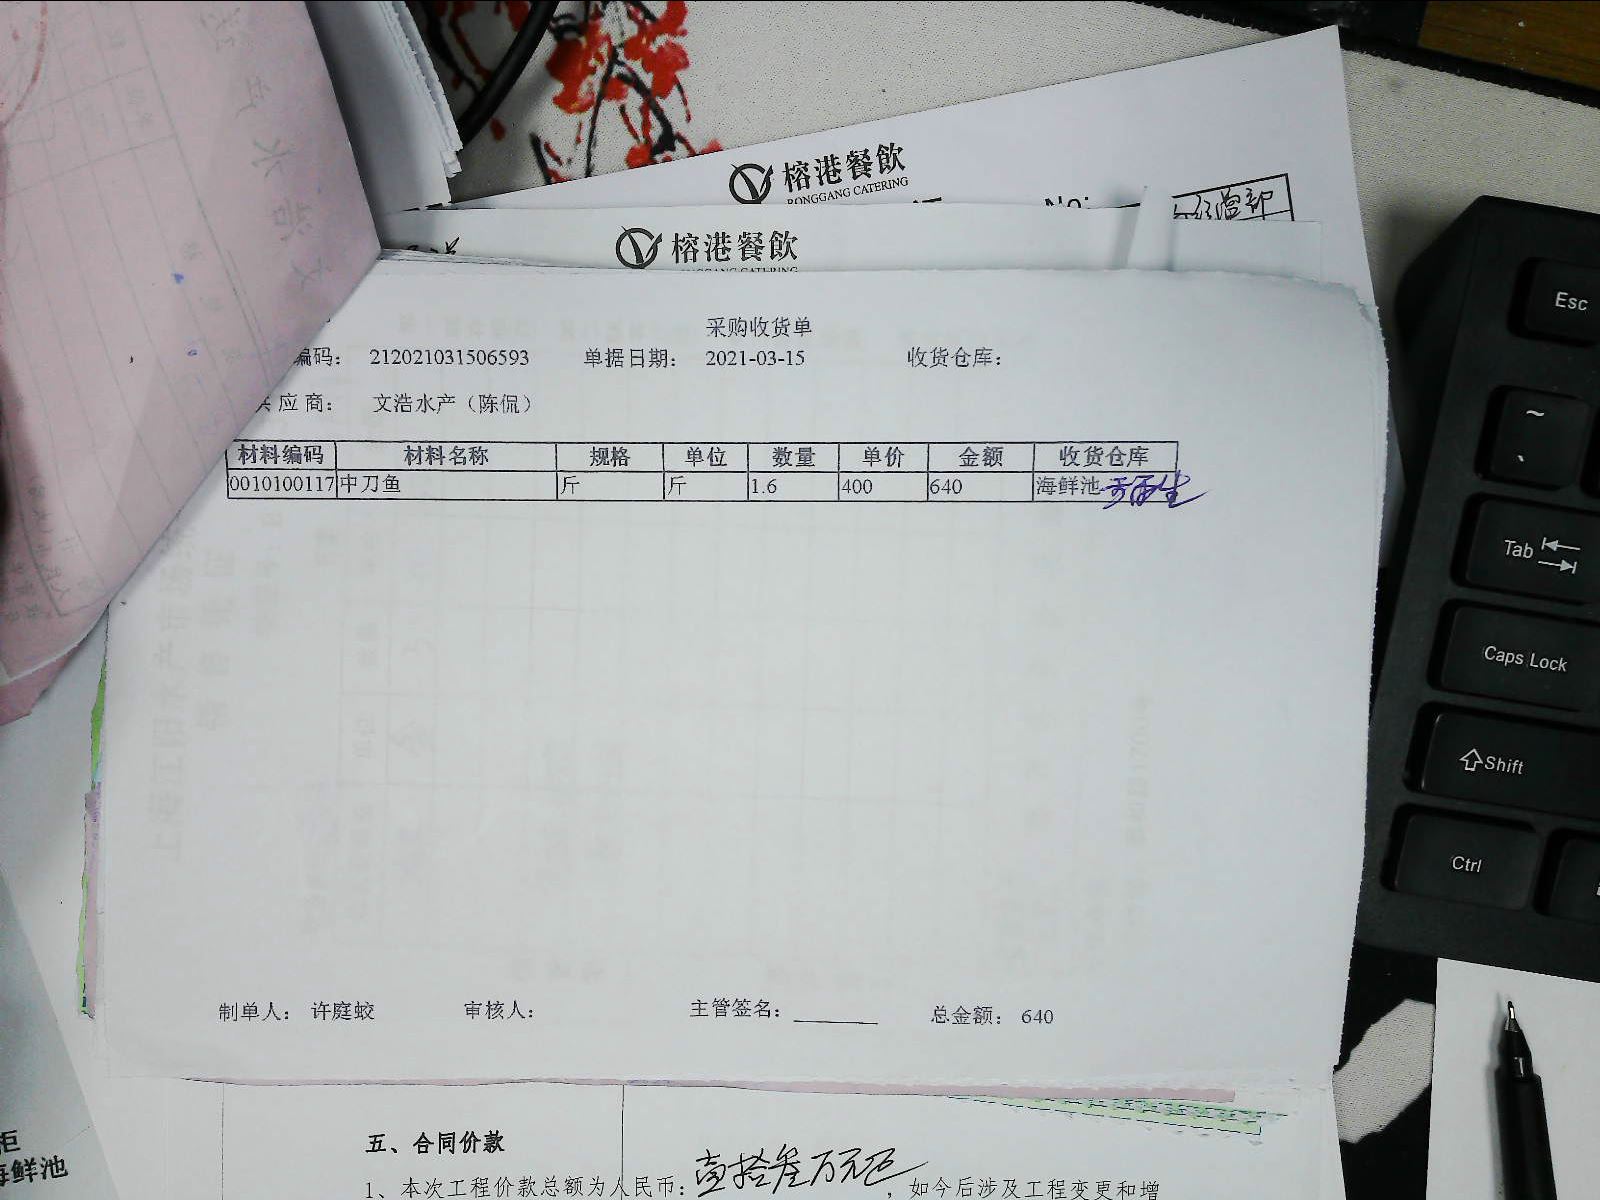 榕港餐飲
RONGGANG CATERING
No:
榕港餐飲
采购收货单
编码： 212021031506593 单据日期： 2021-03-15 收货仓库：
供 应 商： 文浩水产（陈侃）
材料编码 材料名称 规格 单位 数量 单价 金额 收货仓库
0010100117 中刀鱼 斤 斤 1.6 400 640 海鲜池
制单人： 许庭蛟 审核人： 主管签名： 总金额： 640
五、合同价款
1、本次工程价款总额为人民币：壹拾叁万元正，如今后涉及工程变更和增
海鲜池
Esc
~
Tab
Caps Lock
Shift
Ctrl